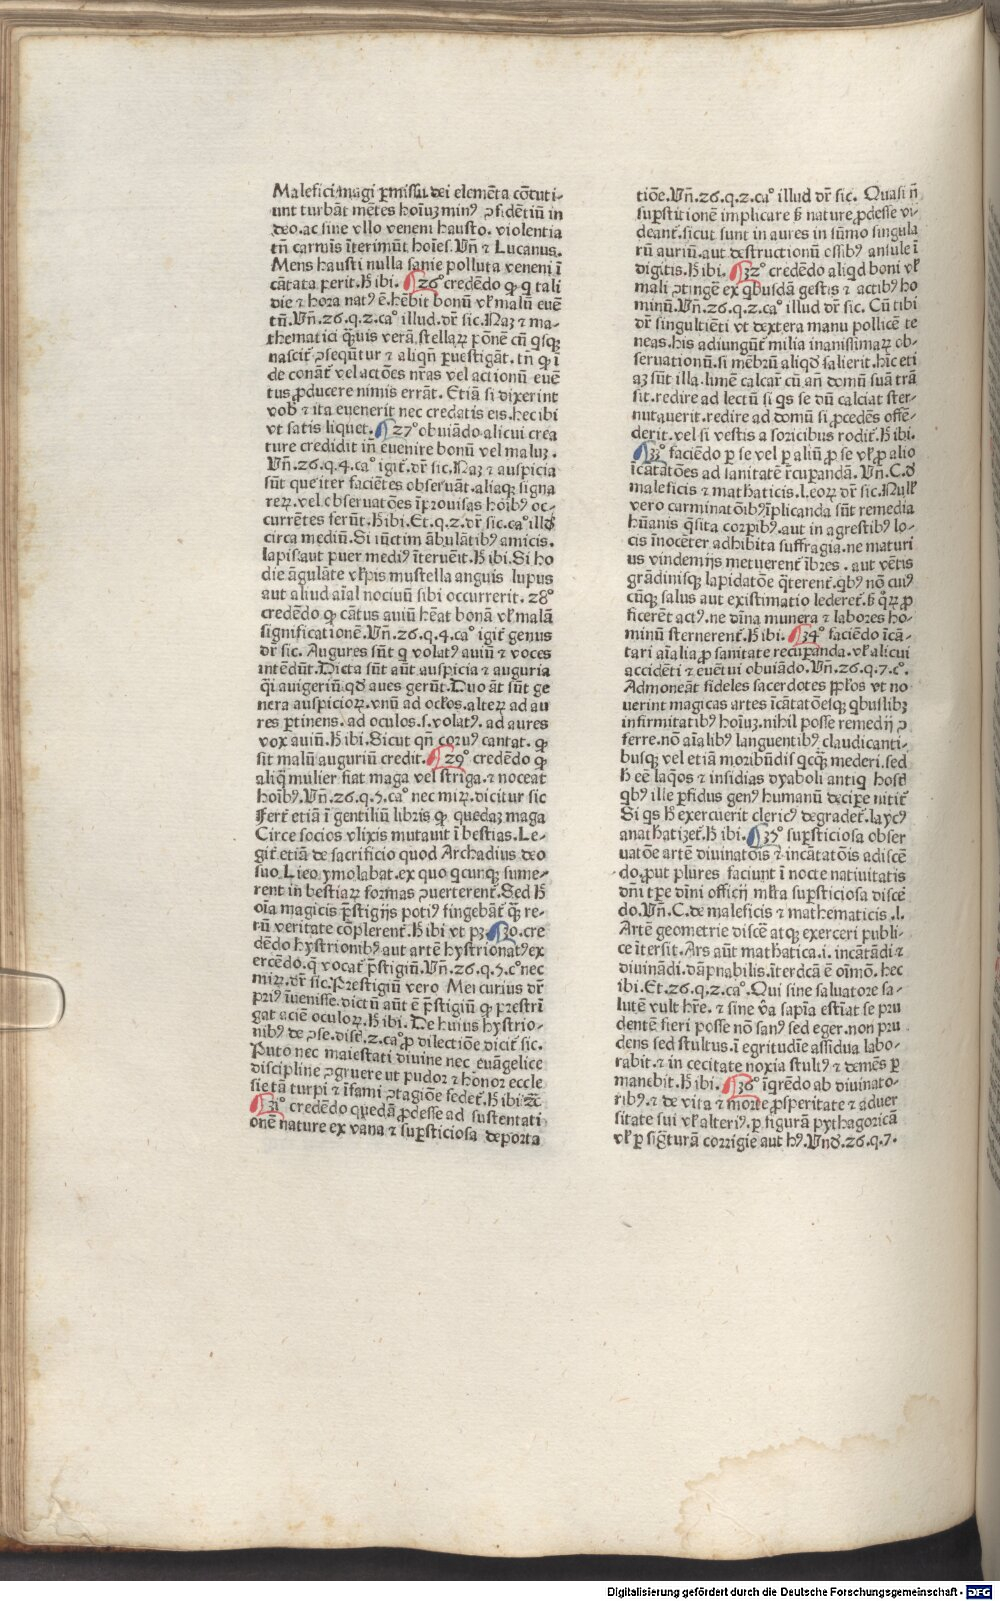 Malefici magi ꝑmissu dei elemēta cōcuti⸗
unt turbāt mētes hoīuꝫ minꝰ ↄfidētiū in
deo. ac sine vllo veneni hausto. violentia
tm̄ carmīs īterimūt hoīes̄. Vn̄ ⁊ Lucanus.
Mens hausti nulla sanie polluta veneni ī
cātata perit. H̄ ibi. ¶26° credēdo ꝙ q tali
die ⁊ hora natꝰ ē. hēbit bonū vl̓ malū euē
tū. Vn̄. 26. q. 2. ca° illud. dr̄ sic. Naꝫ ⁊ ma⸗
thematici q̄uis verā stellaꝝ pōnē cū qsqꝫ
nascit̄ ↄseqūtur ⁊ aliqn̄ ꝑuestigāt. tn̄ ꝙ ī
de conāt̄ vel actōes nr̄as vel actionū euē
tus ꝓducere nimis errāt. Etiā si dixerint
vob̄ ⁊ ita euenerit nec credatis eis. hec ibi
vt satis liquet. ¶27° obuiādo alicui crea
ture credidit in euenire bonū vel maluꝫ.
Vn̄. 26. q. 4. ca° igit̄. dr̄ sic. Naꝫ ⁊ auspicia
sūt que iter faciētes obseruāt. aliaqꝫ signa
reꝝ. vel obseruatōes īprouisas hōibꝰ oc⸗
currētes ferūt. H̄ ibi. Et. q. 2. dr̄ sic. ca° illđ
circa mediū. Si iūctim ābulātibꝰ amicis.
lapis aut puer mediꝰ īteruēit. H̄ ibi. Si ho
die āgulate vl̓ pis mustella anguis lupus
aut aliud aīal nociuū sibi occurrerit. 28°
credēdo ꝙ cātus auiū hēat bonā vl̓ malā
significationē. Vn̄. 26. q. 4. ca° igit̄ genus
dr̄ sic. Augures sūt q volatꝰ auiū ⁊ voces
intēdūt. Dicta sūt aūt auspicia ⁊ auguria
q̄i auigeriū qđ aues gerūt. Duo āt sūt ge
nera auspicioꝝ. vnū ad ocl̓os. alteꝝ ad au
res ꝑtinens. ad oculos. s. volatꝰ. ad aures
vox auiū. H̄ ibi. Sicut qn̄ coruꝰ cantat. ꝙ
sit malū auguriū credit. ¶29° credēdo ꝙ
aliq̄ mulier fiat maga vel striga. ⁊ noceat
hoībꝰ. Vn̄. 26. q. 5. ca° nec miꝝ. dicitur sic
Fert̄ etiā ī gentiliū libris ꝙ quedaꝫ maga
Circe socios vlixis mutauit ī bestias. Le⸗
git̄ etiā de sacrificio quod Archadius deo
suo Lieo ymolabat. ex quo qcunqꝫ sume⸗
rent in bestiaꝝ formas ↄuerterent̄. Sed H̄
oīa magicis p̄stigijs potiꝰ fingebāt̄ q̄ꝫ re⸗
rū veritate cōplerent̄. H̄ ibi vt pꝫ. ¶30. cre
dēdo hystrionibꝰ aut artē hystrionatꝰ ex
ercēdo. q̄ vocat̄ p̄stigiū. Vn̄. 26. q. 5. c° nec
miꝝ. dr̄ sic. Prestigiū vero Mercurius dr̄
priꝰ īuenisse. dictū aūt ē p̄stigiū ꝙ prestrī
gat aciē oculoꝝ. H̄ ibi. De huius hystrio⸗
nibꝰ de ↄse. dist̄. 2. ca° ꝓ dilectiōe dicit̄ sic.
Puto nec maiestati diuine nec euāgelice
discipline ↄgruere ut pudor ⁊ honor eccle
sie tā turpi ⁊ īfami ↄtagiōe fedet̄. H̄ ibi ⁊c̄
¶31° credēdo quedā ꝓdesse ad sustentati
onē nature ex vana ⁊ suꝑsticiosa deporta
tiōe. Vn̄. 26. q. 2. ca° illud dr̄ sic. Quasi n̄
suꝑstitionē implicare s̄ꝫ nature ꝓdesse vi⸗
deant̄. sicut sunt in aures in sūmo singula
rū auriū. aut destructionū ossibꝰ ansule ī
digitis. H̄ ibi. ¶32° credēdo aliqd boni vl̓
mali ↄtingē ex qbusdā gestis ⁊ actibꝰ ho
minū. Vn̄. 26. q. 2. ca° illud dr̄ sic. Cū tibi
dr̄ singultiēti vt dextera manu pollicē te
neas. his adiungūt̄ milia inanissimaꝝ ob⸗
seruationū. si mēbrū aliqđ salierit. hīc eti
aꝫ sūt illa. limē calcar̄ cū an̄ domū suā trā
sit. redire ad lectū si qs se dū calciat ster⸗
nutauerit. redire ad domū si ꝓcedēs offē⸗
derit. vel si vestis a soricibus rodit̄. H̄ ibi.
¶33° faciēdo ꝑ se vel ꝑ aliū ꝓ se vl̓ ꝓ alio
īcātatōes ad sanitatē īcuꝑandā. Vn̄. C. đ
maleficis ⁊ mathaticis. l. eoꝝ dr̄ sic. Null̓
vero carminatōibꝰ īplicanda sūt remedia
hūanis q̄sita corꝑibꝰ. aut in agrestibꝰ lo⸗
cis īnocēter adhibita suffragia. ne maturi
us vindemijs metuerent̄ ībres. aut vētis
grādinisqꝫ lapidatōe q̄terent̄. qbꝰ nō cuiꝰ
cūqꝫ salus aut existimatio lederet̄. s̄ꝫ q̄ꝝ ꝓ
ficerent actꝰ. ne dīna munera ⁊ labores ho⸗
minū sternerent̄. H̄ ibi. ¶34° faciēdo īcā⸗
tari aīalia ꝓ sanitate recuꝑanda. vl̓ alicui
accidēti ⁊ euētui obuiādo. Vn̄. 26. q. 7. c°.
Admoneāt fideles sacerdotes ppl̓os vt no
uerint magicas artes īcātatōesqꝫ qbuslibꝫ
infirmitatibꝰ hoīuꝫ. nihil posse remedij ↄ
ferre. nō aīalibꝰ languentibꝰ claudicanti⸗
busqꝫ vel etiā moribūdis qcq̄ꝫ mederi. sed
H̄ eē laq̄os ⁊ insidias dyaboli antiq hostꝭ
qbꝰ ille ꝑfidus genꝰ humanū deciꝑe nitit̄
Si qs H̄ exercuerit clericꝰ degradet̄. laycꝰ
anathatizet̄. H̄ ibi. ¶35° suꝑsticiosa obser
uatōe artē diuinatōis ⁊ incātatōis adiscē
do. ꝓut plures faciunt ī nocte natiuitatis
dn̄i tꝑe diui officij ml̓ta suꝑsticiosa discē
do. Vn̄. C. de maleficis ⁊ mathematicis. l.
Artē geometrie discē atqꝫ exerceri publi⸗
ce ītersit. Ars aūt mathatica. i. incātādi ⁊
diuinādi. dāpnabilis. īterdcā ē oīmō. hec
ibi. Et. 26. q. 2. ca°. Qui sine saluatore sa⸗
lutē vult hr̄e. ⁊ sine v̄a sapīa estīat se pru
dentē fieri posse nō sanꝰ sed eger. non pru
dens sed stultus. ī egritudīe assidua labo⸗
rabit. ⁊ in cecitate noxia stultꝰ ⁊ demēs ꝑ
manebit. H̄ ibi. ¶36° īq̄rēdo ab diuinato⸗
ribꝰ. ⁊ de vita ⁊ morte ꝓsperitate ⁊ aduer
sitate sui vl̓ alteriꝰ. ꝑ figurā pythagoricā
vl̓ ꝑ sig̅turā corrigie aut hꝰ. Vnđ. 26. q. 7.
Digitalisierung gefördert durch die Deutsche Forschungsgemeinschaft - DFG